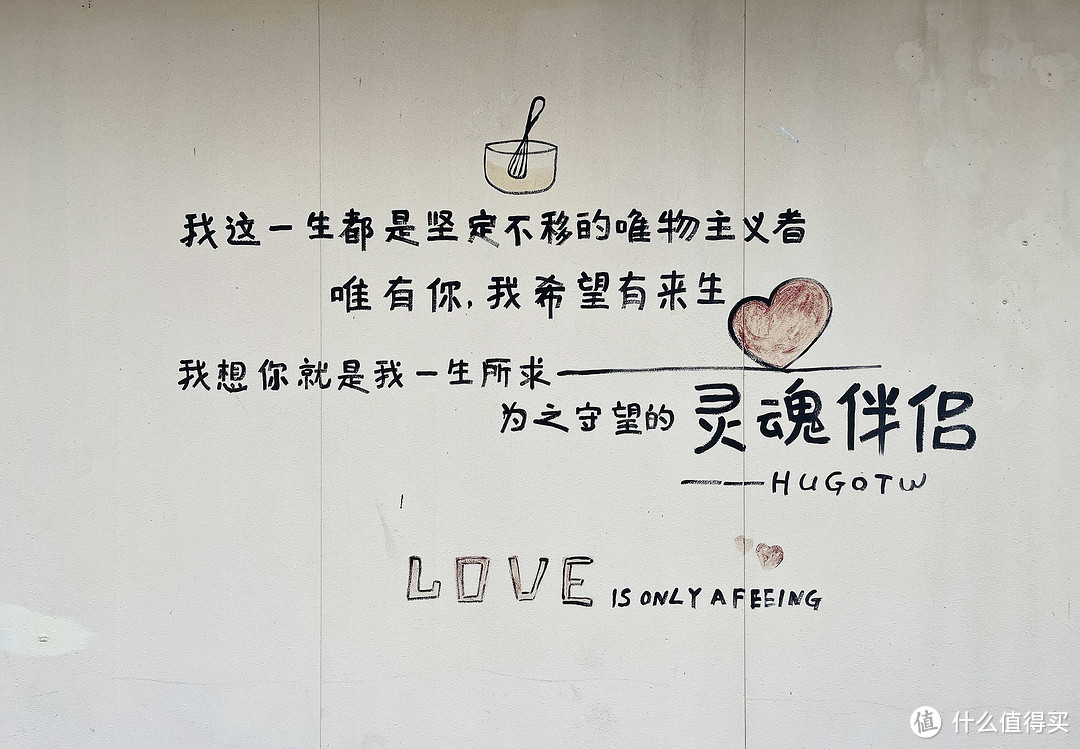 我这一生都是坚定不移的唯物主义者
唯有你,我希望有来生
我想你就是我一生所求——
为之守望的 灵魂伴侣
——HUGOTW
LOVE IS ONLY A FEEING
值 什么值得买